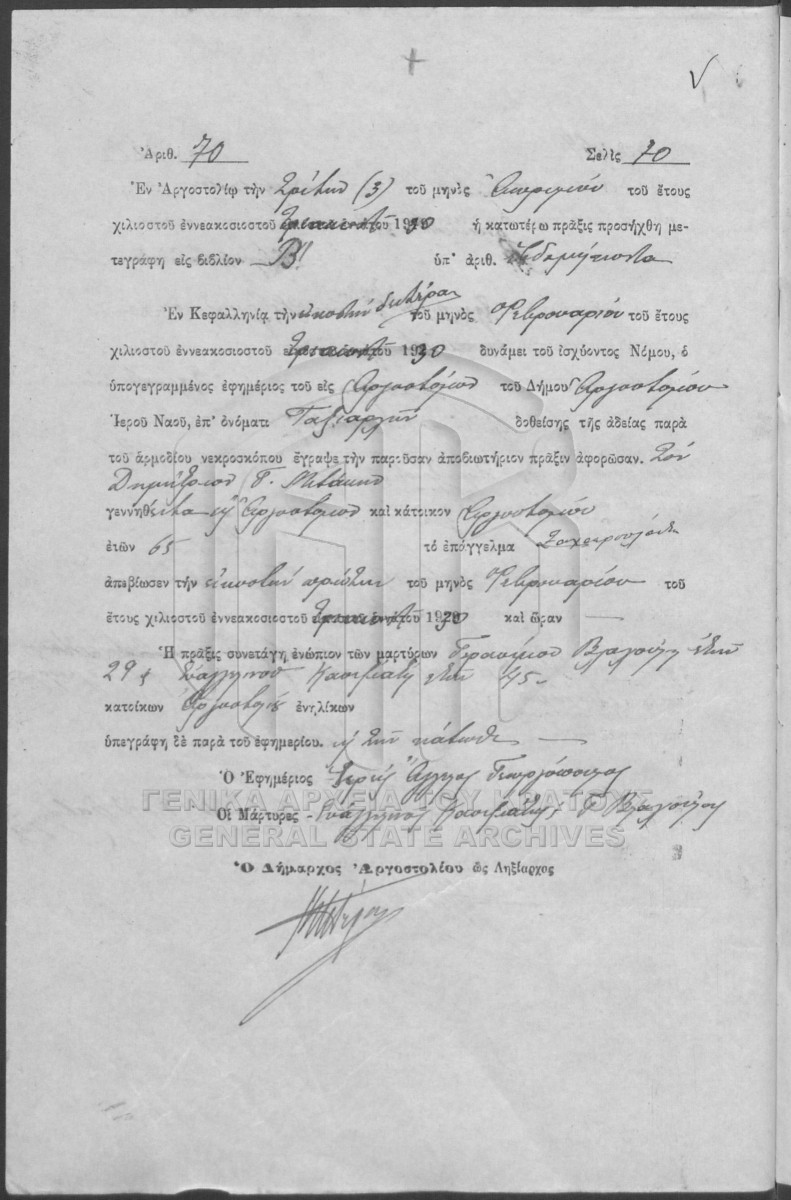 Ἀριθ. 70 Σελὶς 70
Ἐν Ἀργοστολίῳ τὴν Τρίτην (3) τοῦ μηνὸς Ἀπριλίου τοῦ ἔτους
χιλιοστοῦ ἐννεακοσιοστοῦ τριακοστοῦ 1930 ἡ κατωτέρω πρᾶξις προσήχθη με-
τεγράφη εἰς βιβλίον Β' ὑπ' ἀριθ. ἑβδομήκοντα
Ἐν Κεφαλληνίᾳ τὴν εἰκοστὴν δευτέραν τοῦ μηνὸς Φεβρουαρίου τοῦ ἔτους
χιλιοστοῦ ἐννεακοσιοστοῦ τριακοστοῦ 1930 δυνάμει τοῦ ἰσχύοντος Νόμου, ὁ
ὑπογεγραμμένος ἐφημέριος τοῦ εἰς Ἀργοστόλιον τοῦ Δήμου Ἀργοστολίου
Ἱεροῦ Ναοῦ, ἐπ' ὀνόματι Ταξιαρχῶν δοθείσης τῆς ἀδείας παρὰ
τοῦ ἁρμοδίου νεκροσκόπου ἔγραψε τὴν παροῦσαν ἀποβιωτήριον πρᾶξιν ἀφορῶσαν. Τὸν
Δημήτριον Γ. Μπάκην
γεννηθέντα εἰς Ἀργοστόλιον καὶ κάτοικον Ἀργοστολίου
ἐτῶν 65 τὸ ἐπάγγελμα
ἀπεβίωσεν τὴν εἰκοστὴν πρώτην τοῦ μηνὸς Φεβρουαρίου τοῦ
ἔτους χιλιοστοῦ ἐννεακοσιοστοῦ τριακοστοῦ 1930 καὶ ὥραν —
Ἡ πρᾶξις συνετάγη ἐνώπιον τῶν μαρτύρων Γερασίμου ἐτῶν
29 Εὐαγγέλου ἐτῶν 45
κατοίκων Ἀργοστολίου ἐνηλίκων
ὑπεγράφη δὲ παρὰ τοῦ ἐφημερίου. κ τῶν κάτωθι —
Ὁ Ἐφημέριος Ἱερεὺς
ΓΕΝΙΚΑ ΑΡΧΕΙΑ ΤΟΥ ΚΡΑΤΟΥΣ
Οἱ Μάρτυρες Εὐάγγελος
GENERAL STATE ARCHIVES
Ὁ Δήμαρχος Ἀργοστολίου ὡς Ληξίαρχος